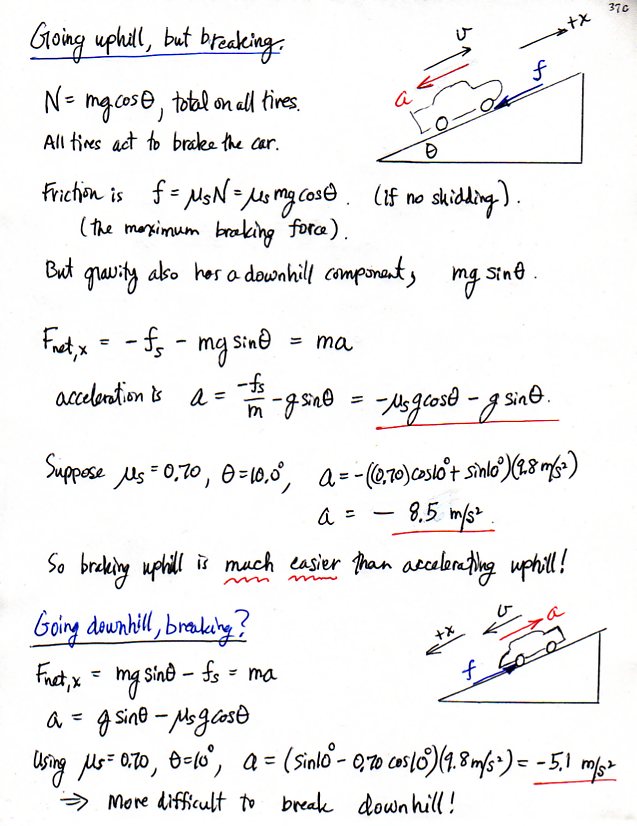 37c
Going uphill, but breaking.
v
+x
a
f
θ
N = mg cosθ, total on all tires.
All tires act to brake the car.
Friction is f = μsN = μs mg cosθ. (if no skidding).
(the maximum braking force).
But gravity also has a downhill component, mg sinθ.
Fnet,x = -fs - mg sinθ = ma
acceleration is a = -fs/m - g sinθ = -μs g cosθ - g sinθ.
Suppose μs = 0.70, θ = 10.0°, a = -((0.70) cos10° + sin10°)(9.8 m/s²)
a = - 8.5 m/s².
So braking uphill is much easier than accelerating uphill!
Going downhill, breaking?
+x
v
a
f
Fnet,x = mg sinθ - fs = ma
a = g sinθ - μs g cosθ
Using μs = 0.70, θ = 10°, a = (sin10° - 0.70 cos10°)(9.8 m/s²) = -5.1 m/s²
⇒ More difficult to break downhill!